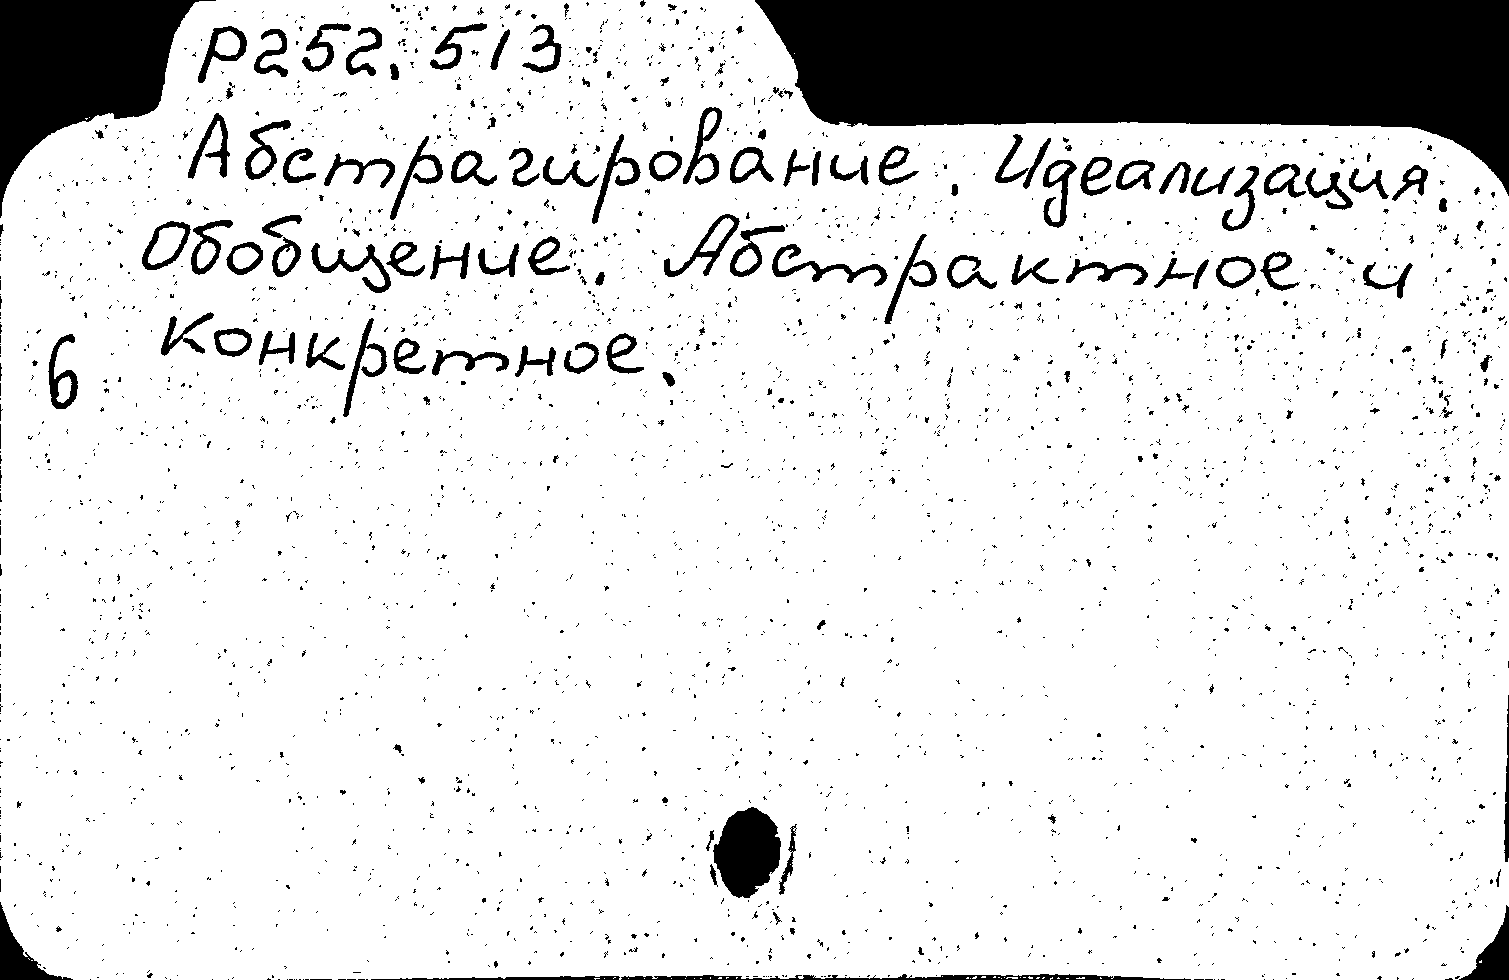 Р252.513
Абстрагирование. Идеализация.
Обобщение. Абстрактное и
конкретное.
6